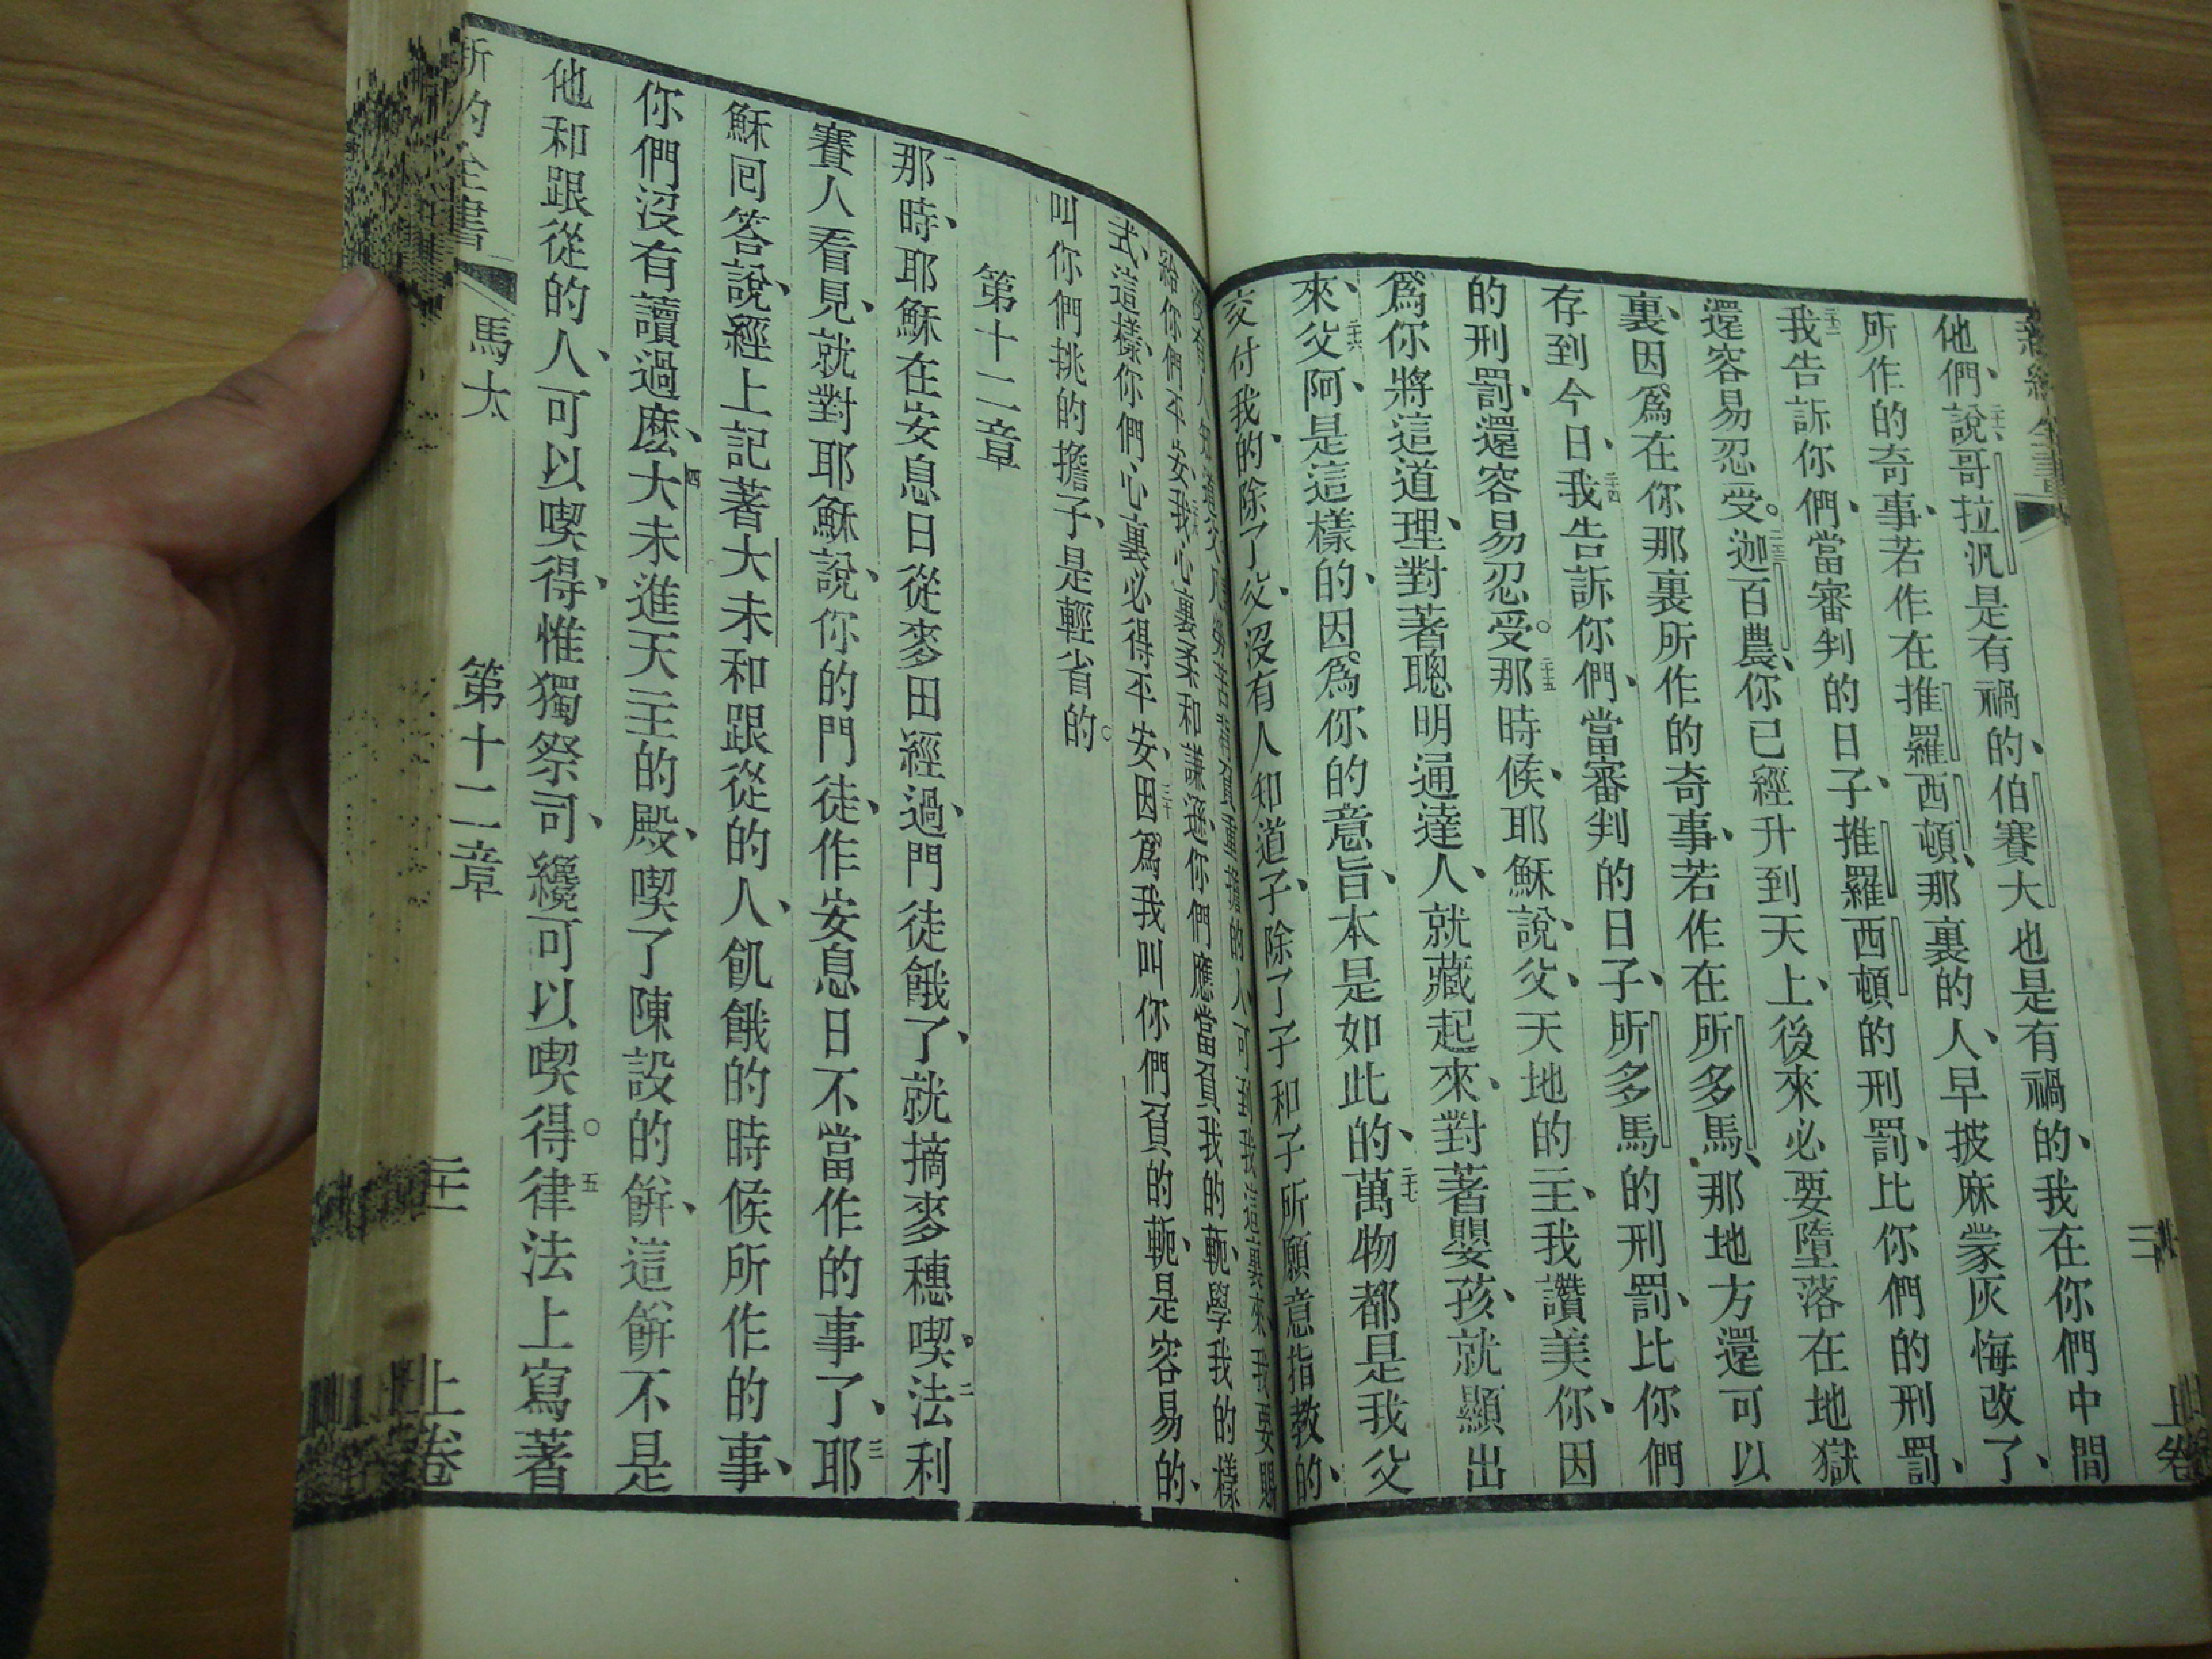 上卷
他們說哥拉汎是有禍的、伯賽大也是有禍的、我在你們中間
所作的奇事、若作在推羅西頓、那裏的人、早披麻蒙灰悔改了、
我告訴你們、當審判的日子、推羅西頓的刑罰、比你們的刑罰、
還容易忍受。二十三迦百農、你已經升到天上、後來必要墮落在地獄
裏、因爲在你那裏所作的奇事、若作在所多馬、那地方還可以
存到今日、二十四我告訴你們、當審判的日子、所多馬的刑罰、比你們
的刑罰、還容易忍受。二十五那時候、耶穌說、父、天地的主、我讚美你、因
爲你將這道理、對著聰明通達人、就藏起來、對著嬰孩、就顯出
來、二十六父阿、是這樣的、因爲你的意旨、本是如此的、二十七萬物都是我父
交付我的、除了父、沒有人知道子、除了子和子所願意指教的、
的人可到我這裏來、我要賜
給你們平安、我心裏柔和謙遜、你們應當負我的軛、學我的樣
式、這樣、你們心裏必得平安、三十因爲我叫你們負的軛、是容易的、
叫你們挑的擔子、是輕省的。
第十二章
那時、耶穌在安息日從麥田經過、門徒餓了、就摘麥穗喫、二法利
賽人看見、就對耶穌說、你的門徒、作安息日不當作的事了、三耶
穌回答說、經上記著大未和跟從的人、飢餓的時候所作的事、
你們沒有讀過麽、四大未進天主的殿、喫了陳設的餅、這餅不是
他和跟從的人、可以喫得、惟獨祭司、纔可以喫得○五律法上寫著
新約全書 馬太 第十二章 二十一 上卷